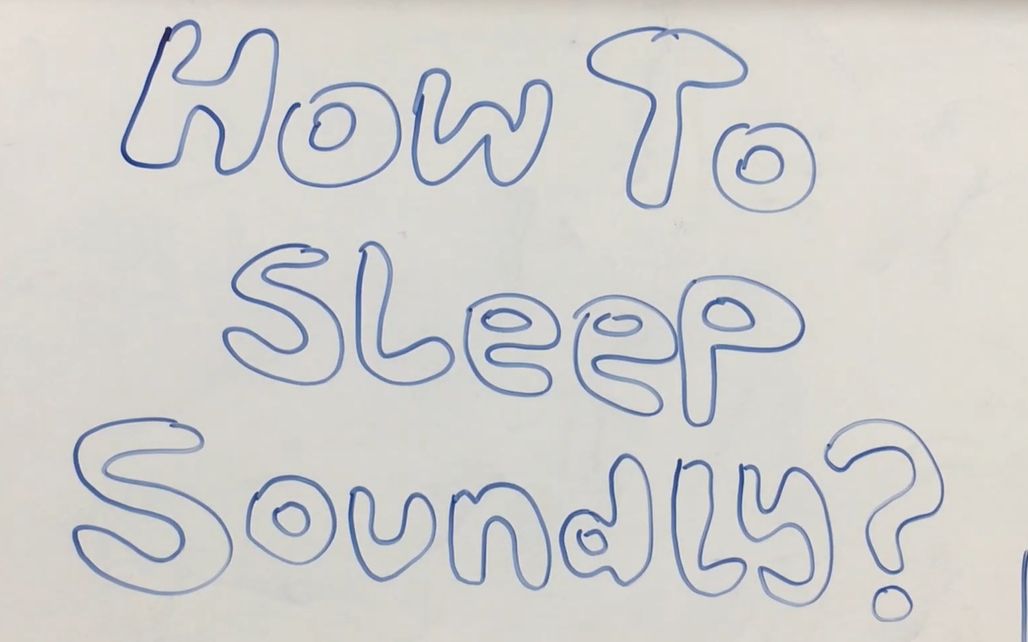 How To
Sleep
Soundly?